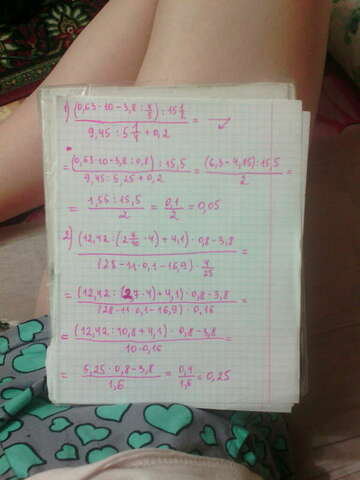 1) ((0,63·10-3,8:4/5):15 1/2)/(9,45:5 1/4+0,2)=
=((0,63·10-3,8:0,8):15,5)/(9,45:5,25+0,2)=((6,3-4,75):15,5)/2=
=(1,55:15,5)/2=0,1/2=0,05
2) ((12,42:(2 7/10·4)+4,1)·0,8-3,8)/((28-11·0,1-16,9)·4/25)=
=((12,42:(2,7·4)+4,1)·0,8-3,8)/((28-11·0,1-16,9)·0,16)=
=((12,42:10,8+4,1)·0,8-3,8)/(10·0,16)=
=(5,25·0,8-3,8)/1,6=0,1/1,6=0,25